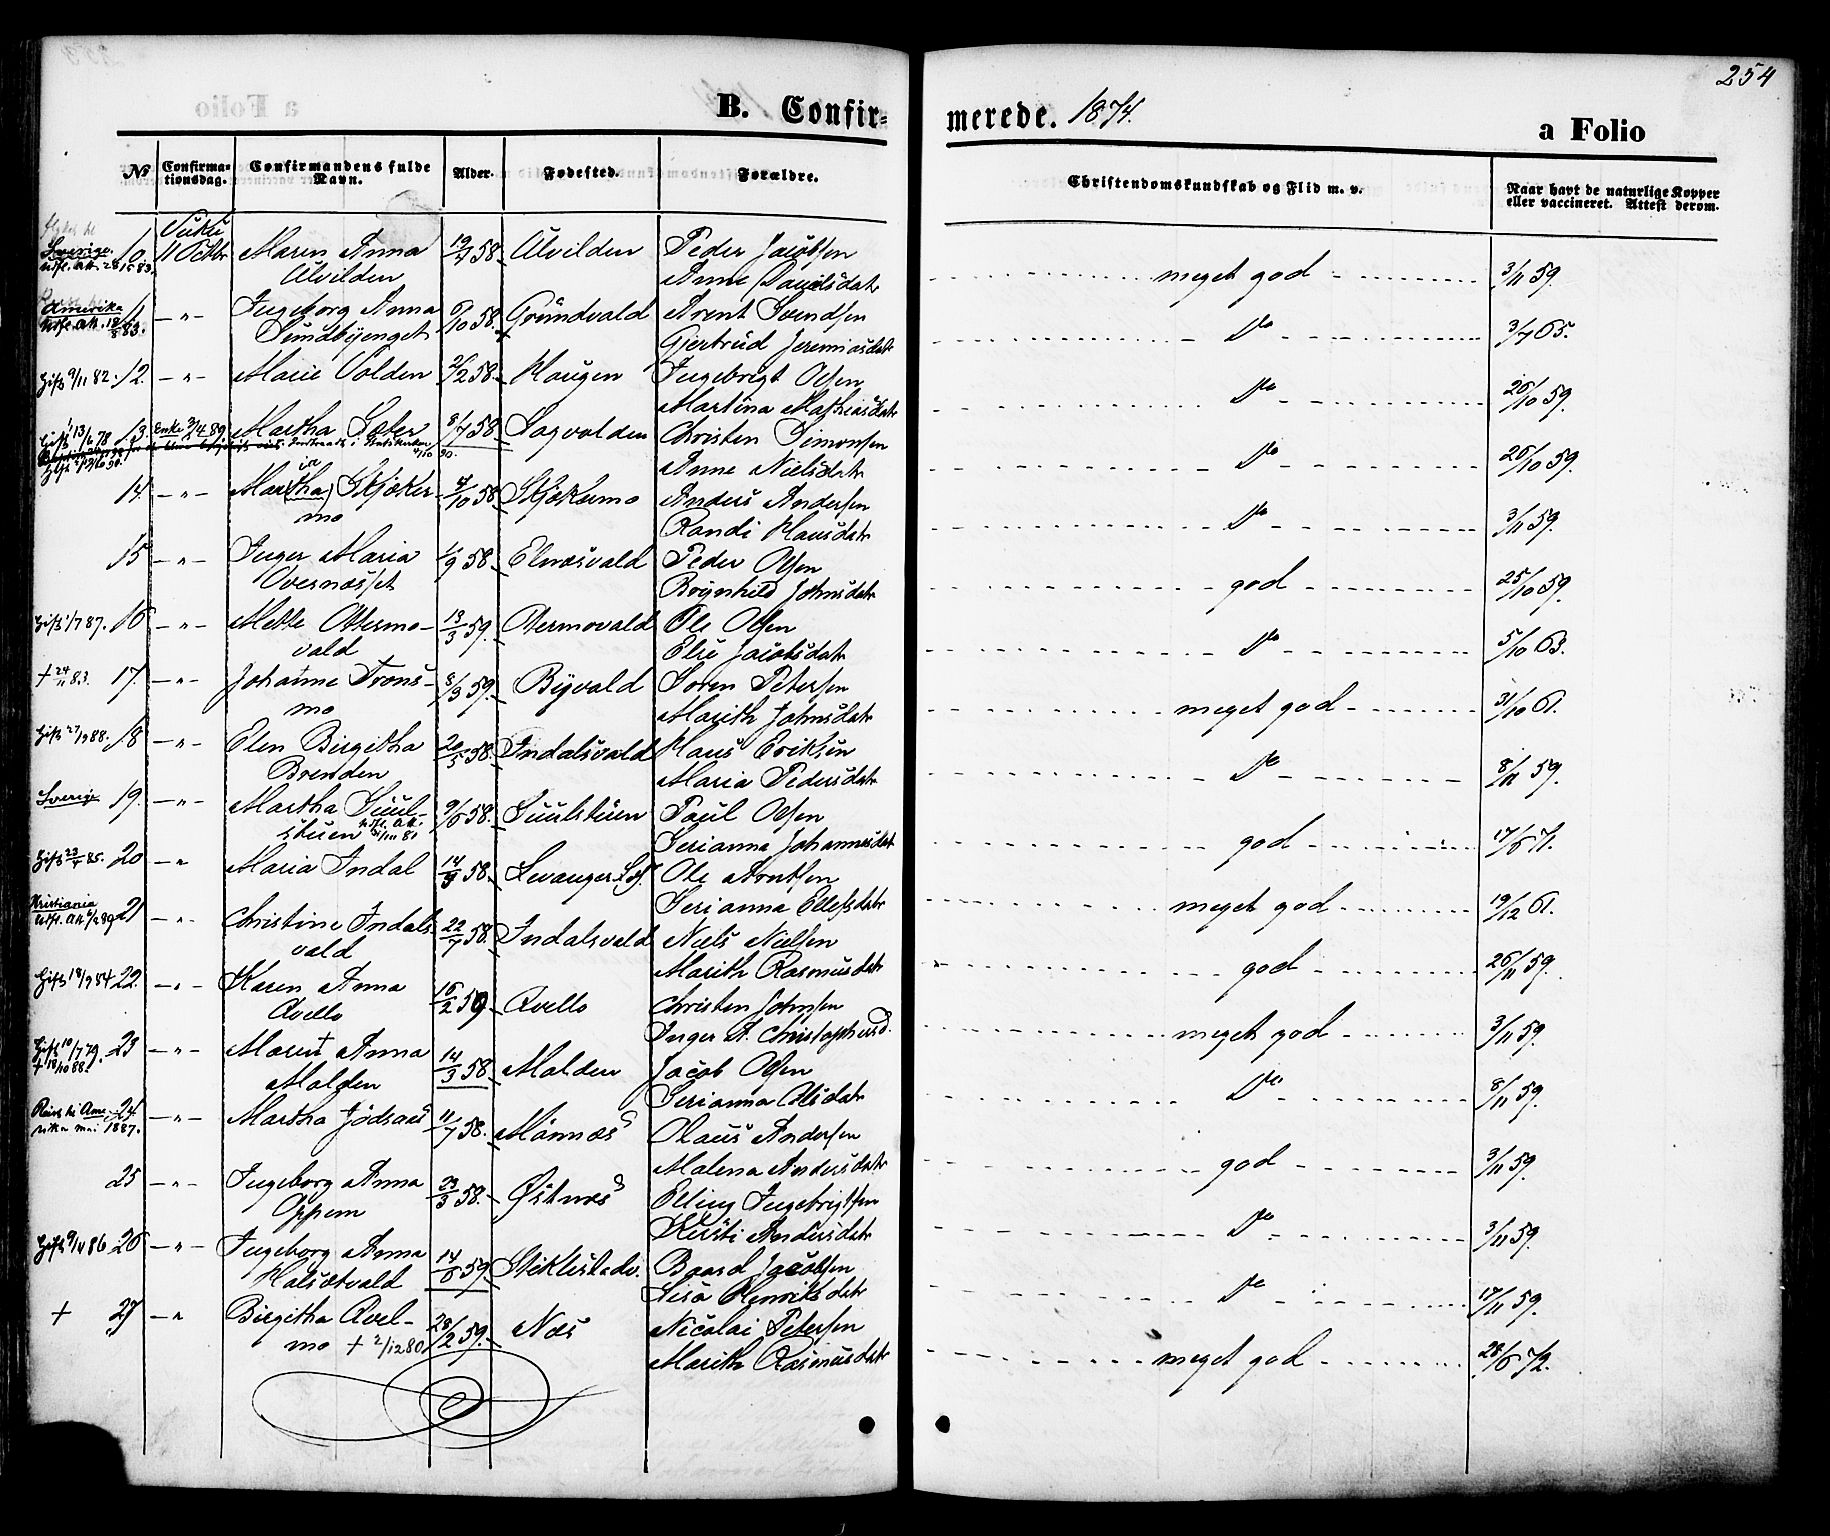 254
a Folio
B. Confir-
merede. 1874.
a Folio
No
Confirma-
tionsdag.
Confirmandens fulde
Navn.
Alder.
Fødested.
Forældre.
Christendomskundskab og Flid m. v.
Naar havt de naturlige Kopper
eller vaccineret. Attest derom.
Sverige 10. 11 Octbr Maren Anna 19/7 58. Alvilden Peder Jacobsen meget god 3/11 59.
Alvilden Anne Danielsdatr
Amerika 11 — " — Ingeborg Anna 6/10 58. Gründvald Arent Svendsen Do 3/7 65.
Sundbyenget Gjertrud Jeremiasdatr
Gift 9/11 82. 12. — " — Marie Volden 2/2 58. Haugen Ingebrigt Olsen Do 26/10 59.
Martina Mathiasdatr
13 Enke 2/4 89 Martha Sæter 8/7 58 Sagvolden Christen Simonsen Do 26/10 59.
Anne Nielsdatr
14. — " — Martha Skjøker- 4/10 58 Skjøkermo Anders Andersen Do 3/11 59.
mo Randi Hansdatr
15 — " — Inger Maria 1/9 58. Elnæsvald Peder Olsen god 25/10 59.
Overnæsset Brynhild Johnsdatr
Gift 1/7 87. 16 — " — Mette Ottermo- 13/3 59. Otermovald Ole Olsen Do 5/10 63.
vald Elie Jacobsdatr
+ 24/11 83. 17. — " — Johanne Trons- 8/3 59. Byvald Soren Petersen meget god 31/10 61.
mo Marith Johnsdatr
Gift 27/9 88. 18 — " — Elen Birgitha 20/5 58. Indalsvald Hans Eriksen Do 8/11 59.
Brenden Maria Pedersdatr
Sverige 19. — " — Martha Suul- 9/6 58. Suulstuen Paul Olsen god 17/6 71.
stuen Serianna Johannesdatr
Gift 23/4 85. 20 — " Maria Indal 14/9 58. Levanger Ls. Ole Arntsen meget god 19/12 61.
Serianna Ellefsdatr
Kristiania
21 — " Christine Indals 22/7 58. Indalsvald Niels Nielsen god 26/11 59.
vald Marith Rasmusdatr
Gift 18/9 84 22. — " — Karen Anna 16/2 59. Avello Christen Johnsen meget god 3/11 59.
Avello Inger A. Christophersd.
Gift 10/7 79. 23 — " — Maren Anna 14/3 58 Molden Jacob Olsen Do 8/11 59.
+ 18/10 88. Molden Serianna Olsdatr
Reist til Ame- 24. — " — Martha Jodsaas 11/7 58. Mönnæs Olaus Andersen god 3/11 59.
rika mai 1887. Malena Andersdatr
25 — " — Ingeborg Anna 23/3 58. Østnæs Elling Ingebrigtsen Do 3/11 59.
Oppem Kirsti Andersdatr
Gift 9/4 86 26 — " — Ingeborg Anna 14/6 59. Stiklestadv. Baard Jacobsen Do 17/11 59.
Halsetvald Lisa Henriksdatr
+ 27 — " Birgitha Avel- 28/2 59. Næs Nicolai Petersen meget god 28/6 72.
mo + 2/12 80 Marith Rasmusdatr